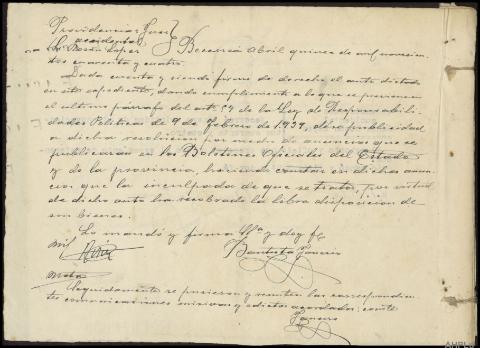 Providencia: Juez
accidental
Sr. Martín López } Becerreá Abril quince de mil novecien-
tos cuarenta y cuatro.
Dada cuenta y siendo firme de derecho el auto dictado
en este expediente, dando cumplimiento a lo que se previene en
el último párrafo del art. de la Ley de Responsabili-
dades Políticas de 9 de Febrero de 1.939, dése publicidad
a dicha resolución por medio de anuncios que se
publicarán en los Boletines Oficiales del Estado
y de la provincia, haciendo constar en dichos anun-
cios que la inculpada de que se trata, por virtud
de dicho auto ha recobrado la libre disposición de
sus bienes.
Lo mandó y firma Sª y doy fe
Bautista
Seguidamente se pusieron y remiten las correspondien-
tes comunicaciones misivas y edictos acordados; conste
AHPLu